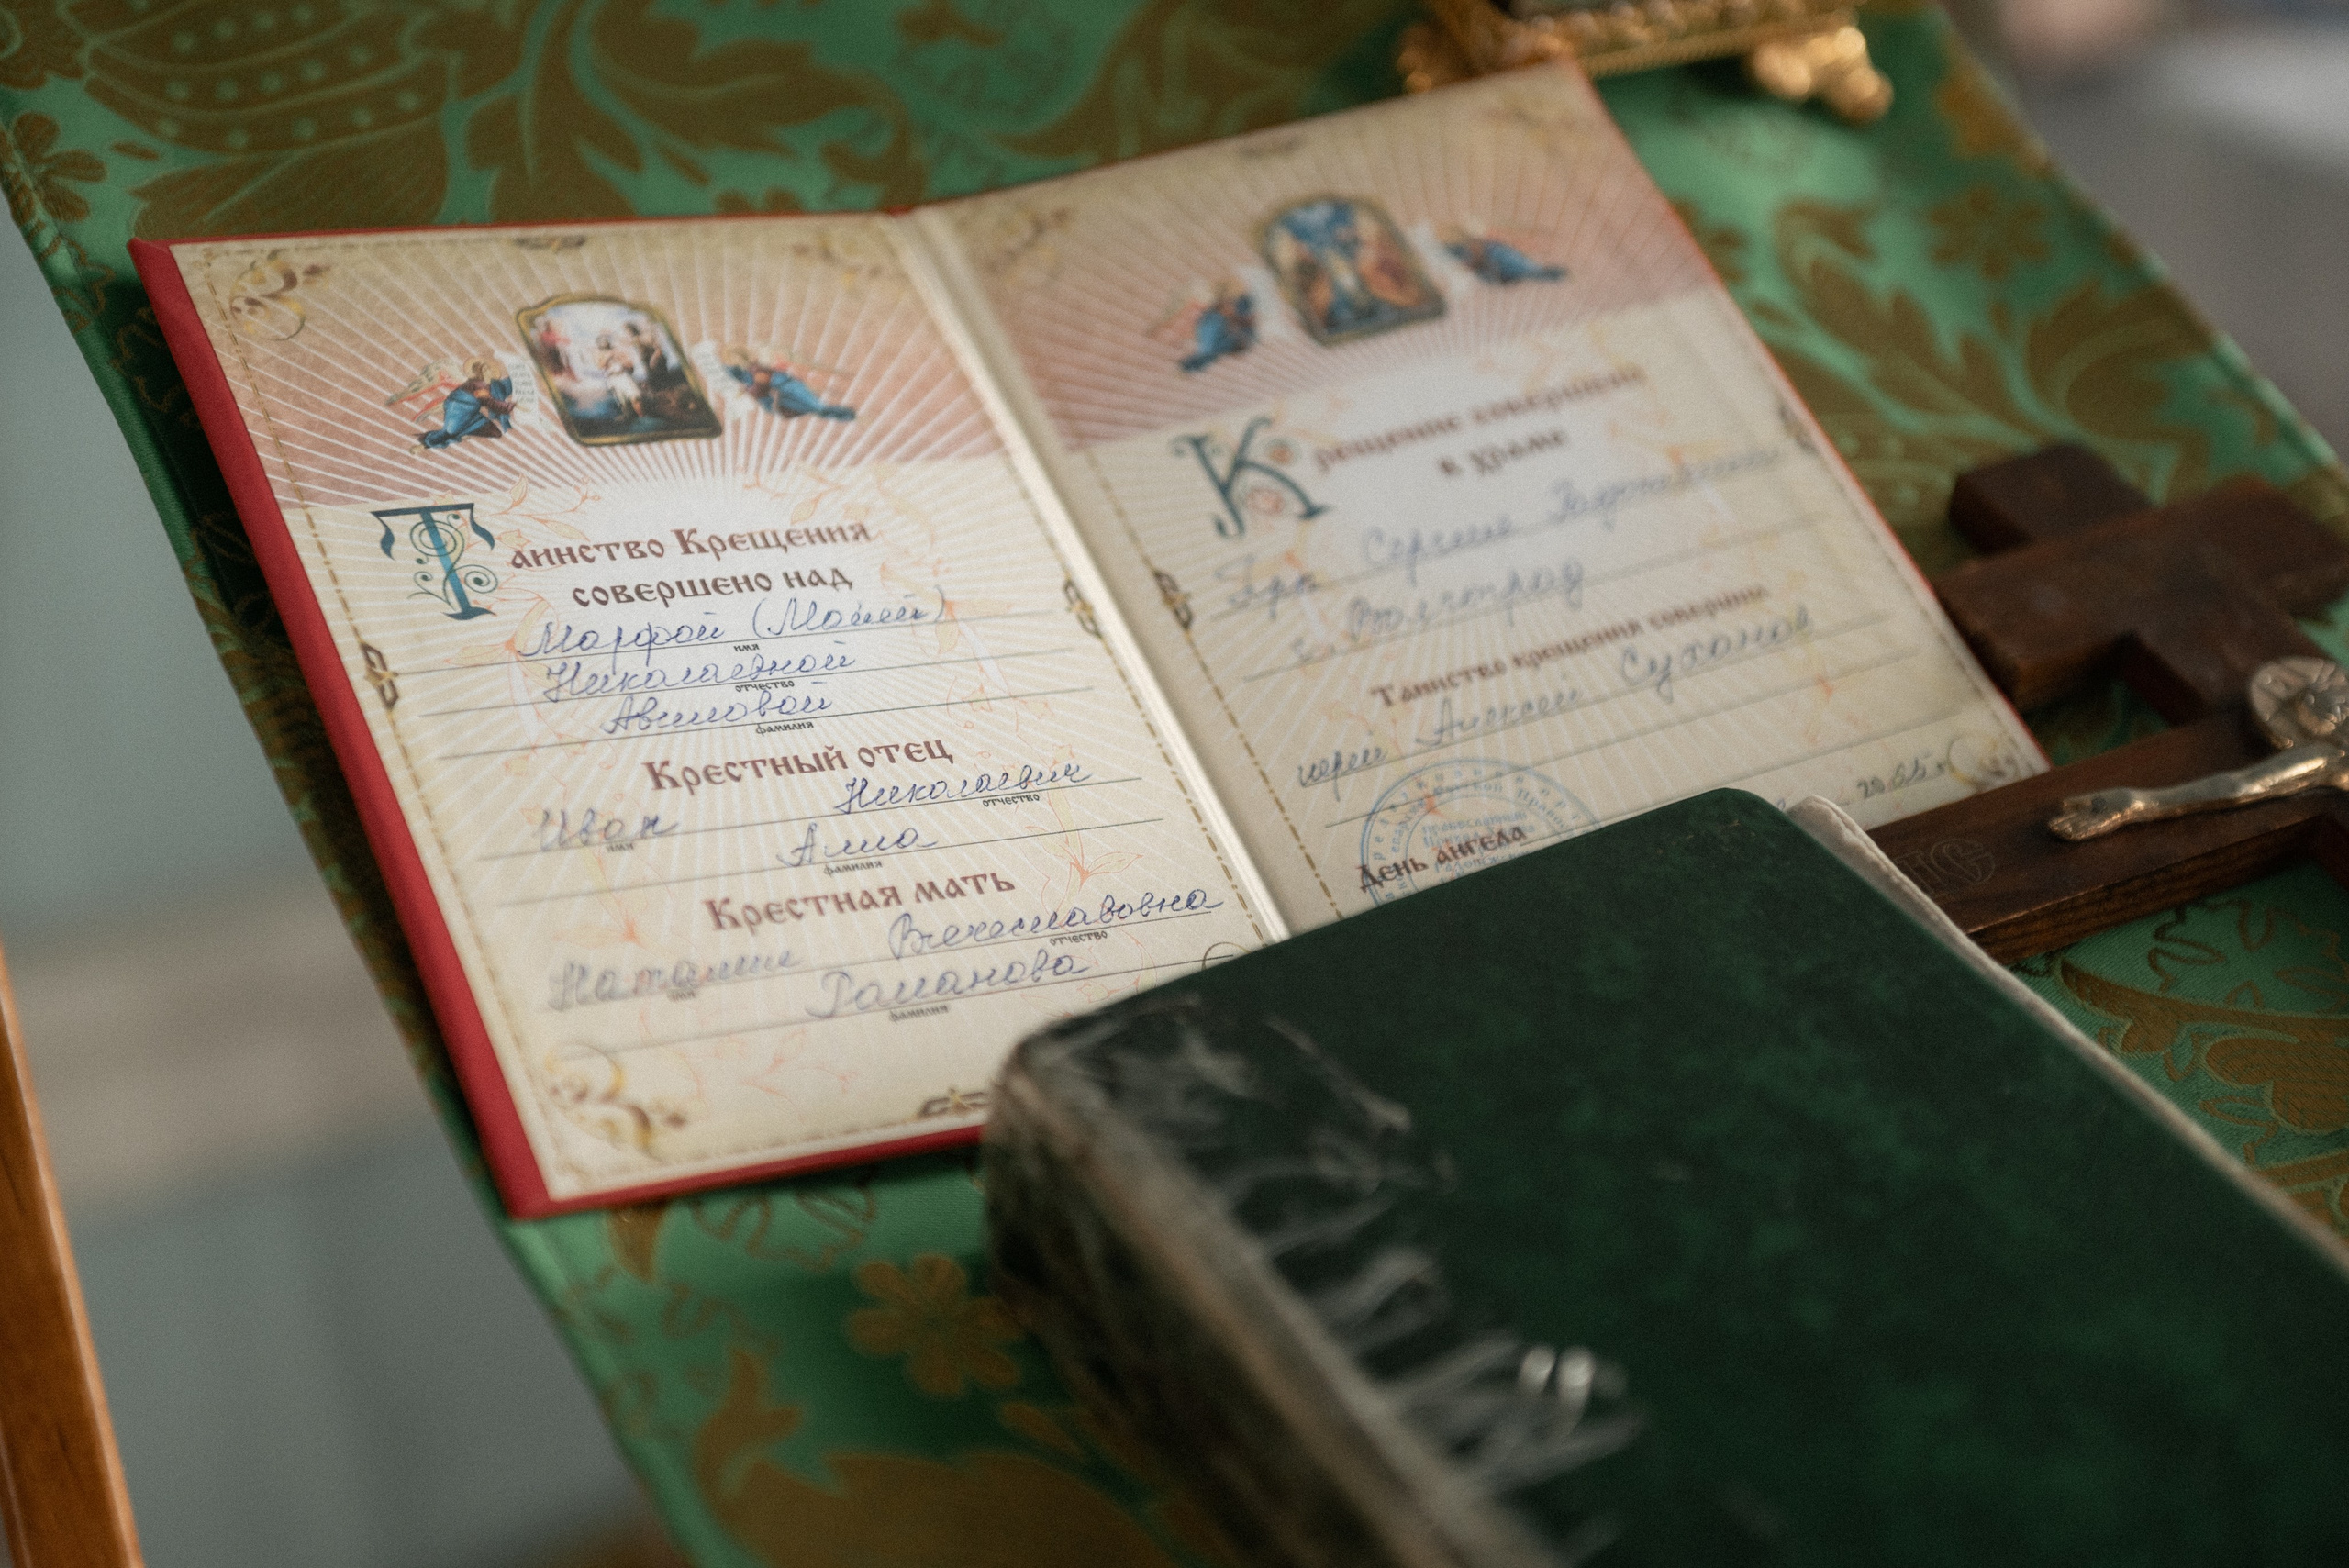 Таинство Крещения
совершено над
Марфой (Майей)
имя
Николаевной
отчество
Авиловой
фамилия
Крестный отец
Иван Николаевич
имя отчество
фамилия
Крестная мать
Наталия Вячеславовна
имя отчество
Романова
фамилия
Крещение совершено
в храме
Сергия
г. Волгоград
Таинство крещения совершил
иерей Алексей Суханов
День ангела